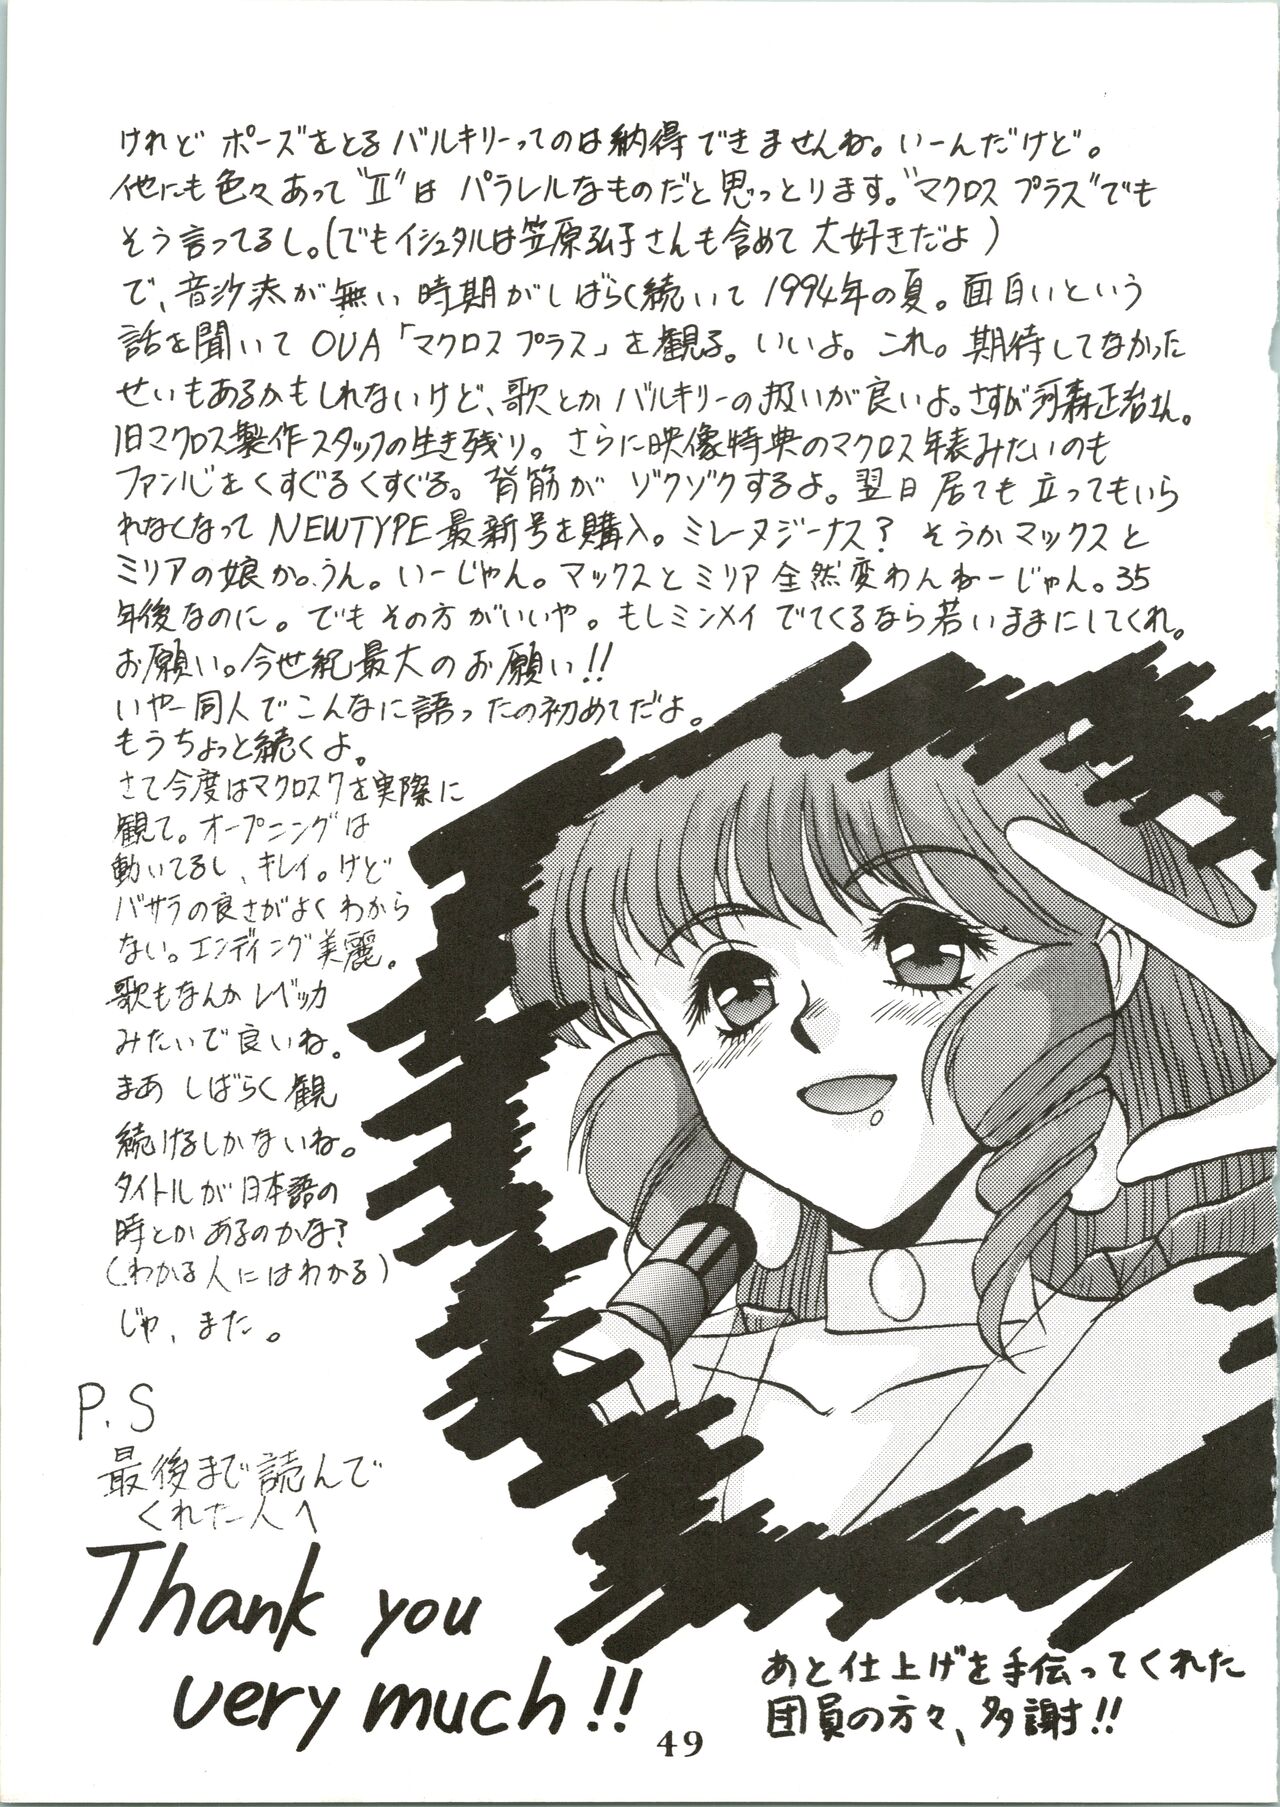 けれど ポーズをとる バルキリーってのは納得できませんね。いーんだけど。
他にも色々あって"Ⅱ"は パラレルなものだと思っとります。"マクロス プラス"でも
そう言ってるし。(でもイシュタルは笠原弘子さんも含めて 大好きだよ)
で、音沙汰が無い時期がしばらく続いて 1994年の夏。面白いという
話を聞いて OVA「マクロス プラス」を観る。いいよ。これ。期待してなかった
せいもあるかもしれないけど、歌とか バルキリーの扱いが良いよ。さすが河森正治さん。
旧マクロス製作スタッフの生き残り。さらに映像特典のマクロス年表みたいのも
ファン心をくすぐるくすぐる。背筋が ゾクゾクするよ。翌日居ても立ってもいら
れなくなって NEWTYPE 最新号を購入。ミレーヌジーナス? そうかマックスと
ミリアの娘か。うん。いーじゃん。マックスとミリア全然変わんねーじゃん。35
年後なのに。でもその方がいいや。もしミンメイ でてくるなら若いままにしてくれ。
お願い。今世紀最大のお願い!!
いやー同人でこんなに語ったの初めてだよ。
もうちょっと続くよ。
さて今度はマクロス7を実際に
観て。オープニングは
動いてるし、キレイ。けど
バサラの良さがよくわから
ない。エンディング美麗。
歌もなんかレベッカ
みたいで良いね。
まあ しばらく観
続けるしかないね。
タイトルが日本語の
時とかあるのかな?
(わかる人にはわかる)
じゃ、また。
P.S
最後まで読んで
くれた人へ
Thank you
very much!!
あと仕上げを手伝ってくれた
団員の方々、多謝!!
49